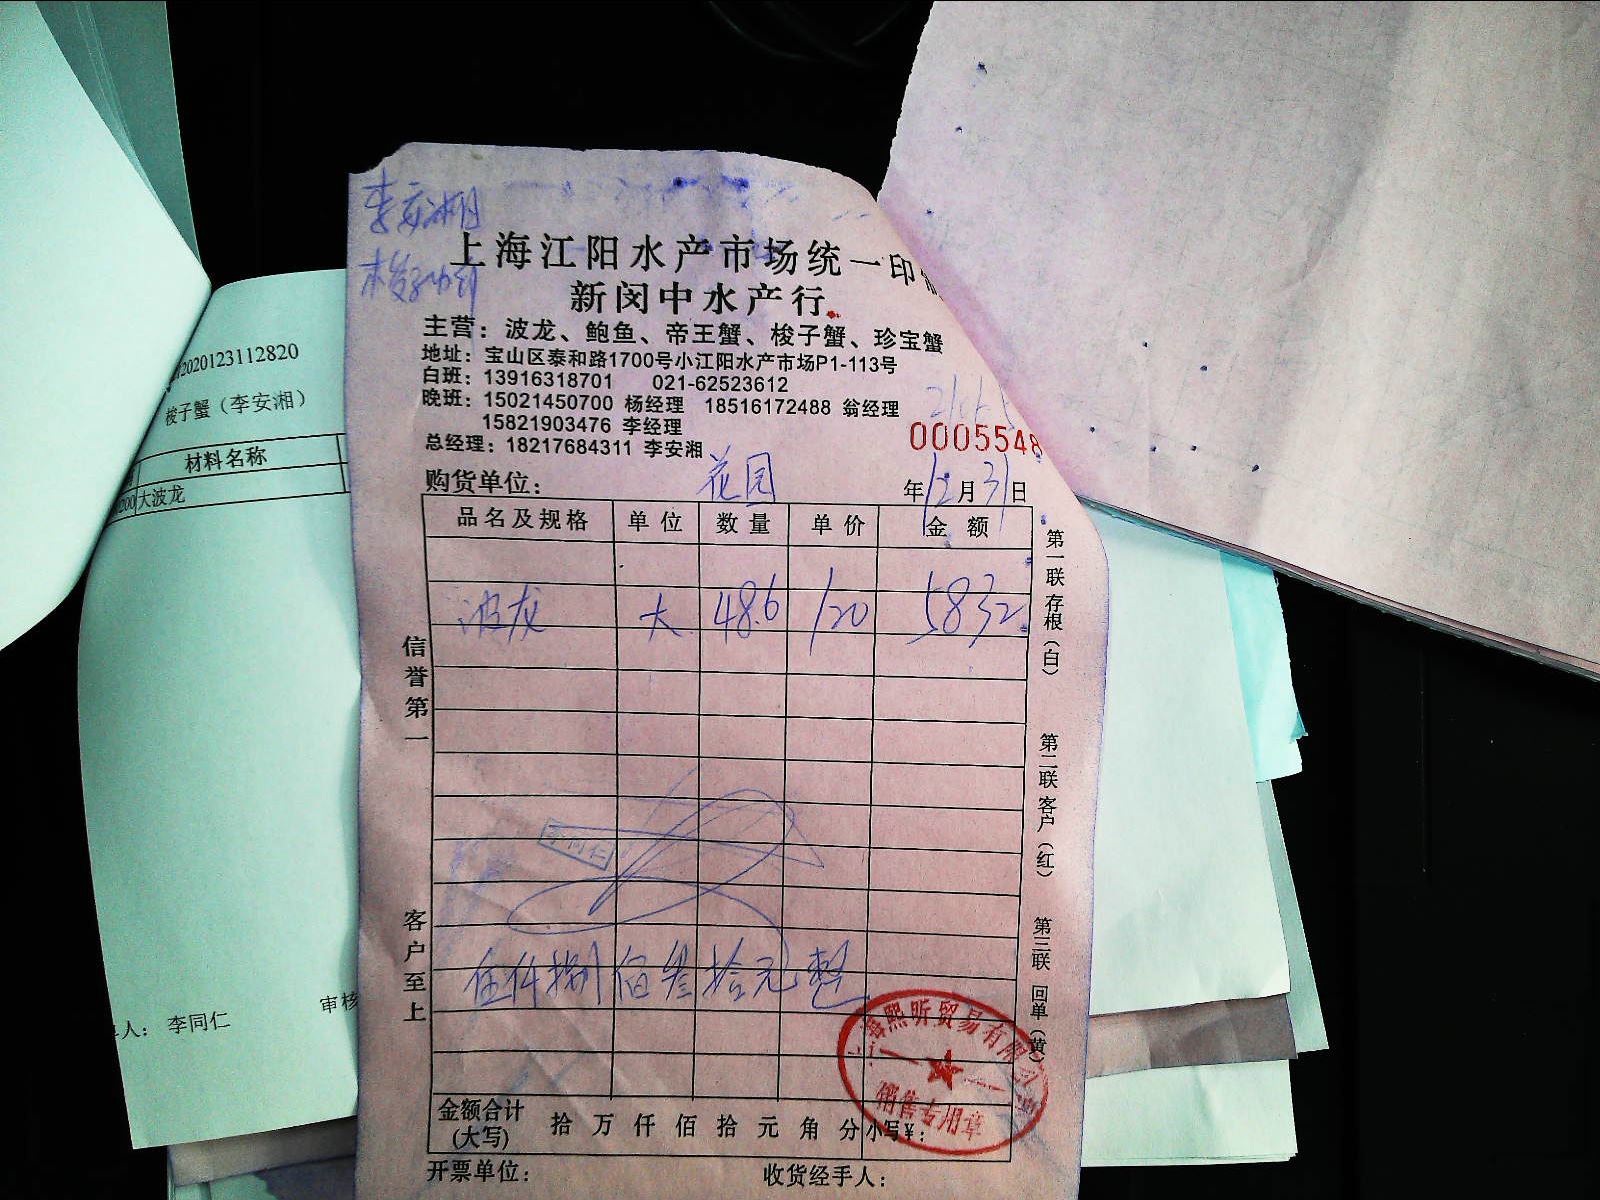 李安湘
梭子蟹
上海江阳水产市场统一印制
新闵中水产行
主营：波龙、鲍鱼、帝王蟹、梭子蟹、珍宝蟹
地址：宝山区泰和路1700号小江阳水产市场P1-113号
白班：13916318701 021-62523612
晚班：15021450700 杨经理 18516172488 翁经理
15821903476 李经理
总经理：18217684311 李安湘
0005548
购货单位： 花园 年12月31日
品名及规格 单位 数量 单价 金额
波龙 大 48.6 120 5832
伍仟捌佰叁拾元整
金额合计(大写) 拾 万 仟 佰 拾 元 角 分 小写¥：
开票单位： 收货经手人：
信誉第一
客户至上
第一联 存根（白）
第二联 客户（红）
第三联 回单（黄）
李同仁
海熙昕贸易有限公司
销售专用章
2020123112820
梭子蟹（李安湘）
材料名称
大波龙
人： 李同仁
审核